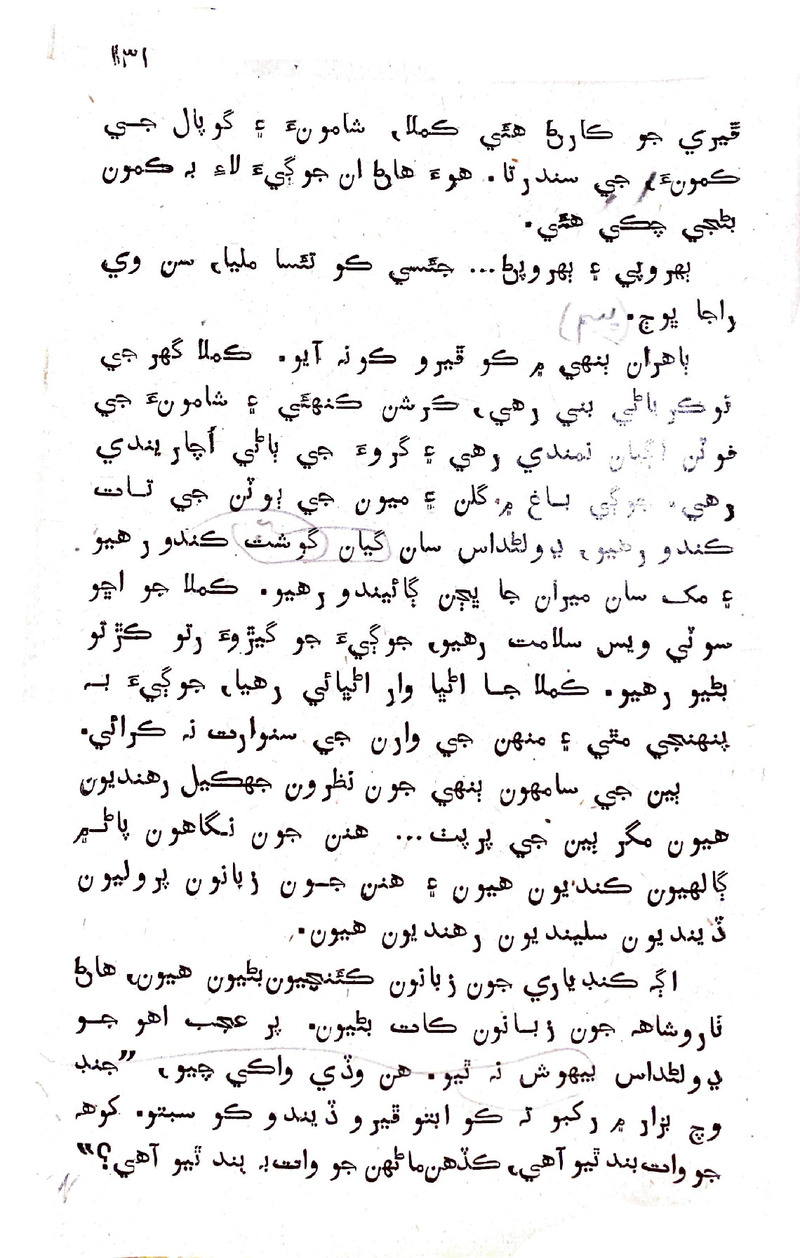 ۱۳۱
ڦيري جو ڪارڻ هئي ڪملا، شامونءَ ۽ گوپال جي
ڪمونءَ، جي سندرتا. هوءَ هاڻ ان جوڳيءَ لاءِ بہ ڪمون
بڻجي چڪي هئي.
بهروپي ۽ بهروپڻ... جئسي ڪو تئسا مليا، سن وي
راجا ڀوڄ.
ٻاهران ٻنهي ۾ ڪو ڦيرو ڪونہ آيو. ڪملا گهر جي
نوڪرياڻي بني رهي، ڪرشن ڪنهئي ۽ شامونءَ جي
فوٽن اڳيان نمندي رهي ۽ گروءَ جي ٻاڻي اُچاريندي
رهي. جوڳي باغ ۾ گلن ۽ ميون جي ٻوٽن جي تات
ڪندو رهيو، ڊولڻداس سان گيان گوشت ڪندو رهيو
۽ مک سان ميران جا ڀڄن ڳائيندو رهيو. ڪملا جو اڇو
سوٽي ويس سلامت رهيو، جوڳيءَ جو گيڙوءَ رتو ڪڙتو
بڻيو رهيو. ڪملا جا اڻڀا وار اڻڀائي رهيا، جوڳيءَ بہ
پنهنجي مٿي ۽ منهن جي وارن جي سنوارت نہ ڪرائي.
ٻين جي سامهون ٻنهي جون نظرون جهڪيل رهنديون
هيون مگر ٻين جي پرپٺ... هنن جون نگاهون پاڻ ۾
ڳالهيون ڪنديون هيون ۽ هنن جون زبانون پروليون
ڏينديون سلينديون رهنديون هيون.
اڳہ ڪنڊياري جون زبانون ڪئنچيون بڻيون هيون، هاڻ
ٺاروشاهہ جون زبانون ڪات بڻيون. پر عجب اهو جو
ڊولڻداس بيهوش نہ ٿيو. هن وڏي واڪي چيو، ”جنڊ
وچ بزار ۾ رکبو تہ ڪو ابتو ڦيرو ڏيندو ڪو سبتو. کوهہ
جو وات بند ٿيو آهي، ڪڏهن ماڻهن جو وات بہ بند ٿيو آهي؟“